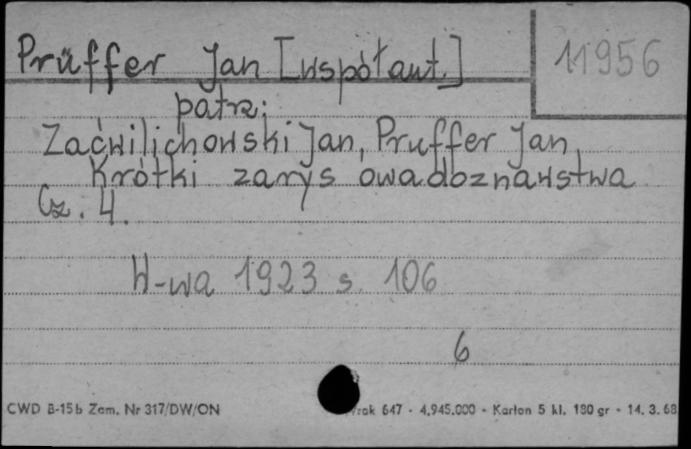 Prüffer Jan [współaut.]
11956
patrz:
Zaćwilichowski Jan, Pruffer Jan,
Krótki zarys owadoznawstwa
Cz. 4.
W-wa 1923 s. 106
6
CWD B-15b Zam. Nr 317/DW/ON
647 - 4.945.000 - Karton 5 kl. 180 gr - 14. 3. 68